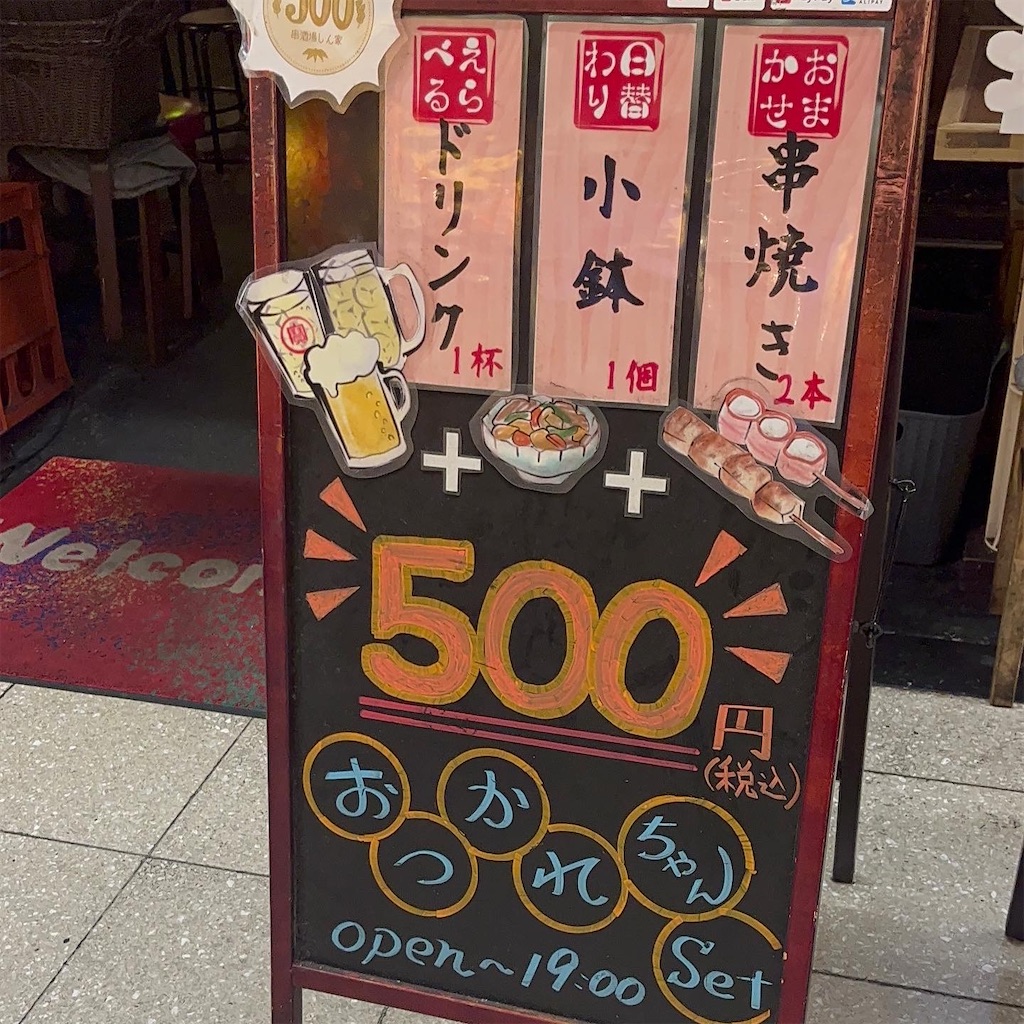 500
串酒場しん家
えらべる
ドリンク
1杯
日替わり
小鉢
1個
おまかせ
串焼き
2本
+ +
500円
(税込)
おつかれちゃん
Set
open~19:00
Welcom